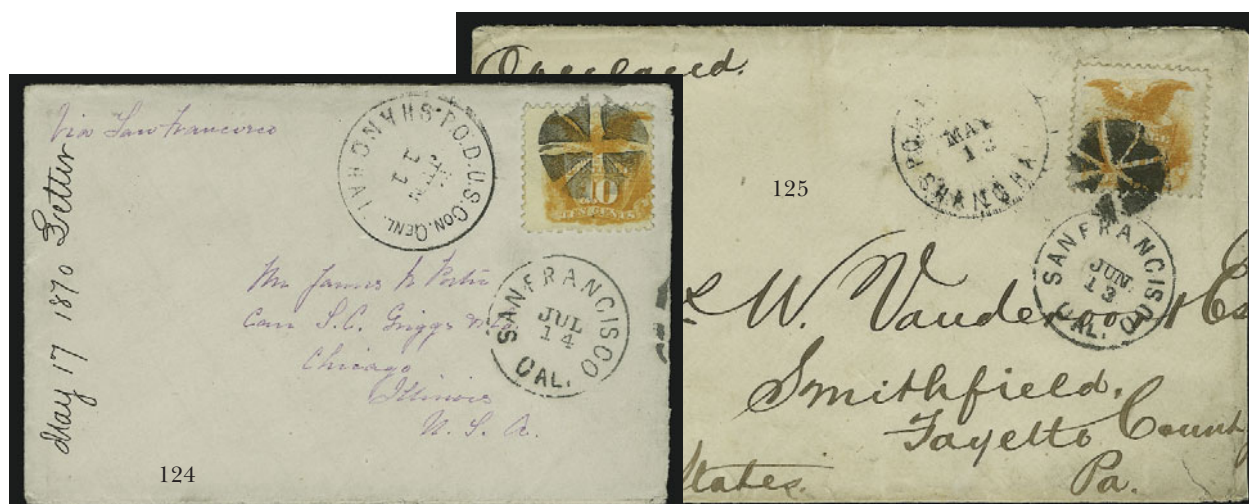 Via San Francisco
May 17 1870 Letter
P.O.D. U.S. CON. GENL. SHANGHAI
JUN
11
10
TEN CENTS
SAN FRANCISCO
JUL
14
CAL.
Mr James
Care S.C. Griggs
Chicago
Illinois
U. S. A.
124
Overland.
SHANGHAI
MAY
13
SAN FRANCISCO
JUN
13
CAL.
125
W. Vandervort Es
Smithfield,
Fayette County
Pa.
States.